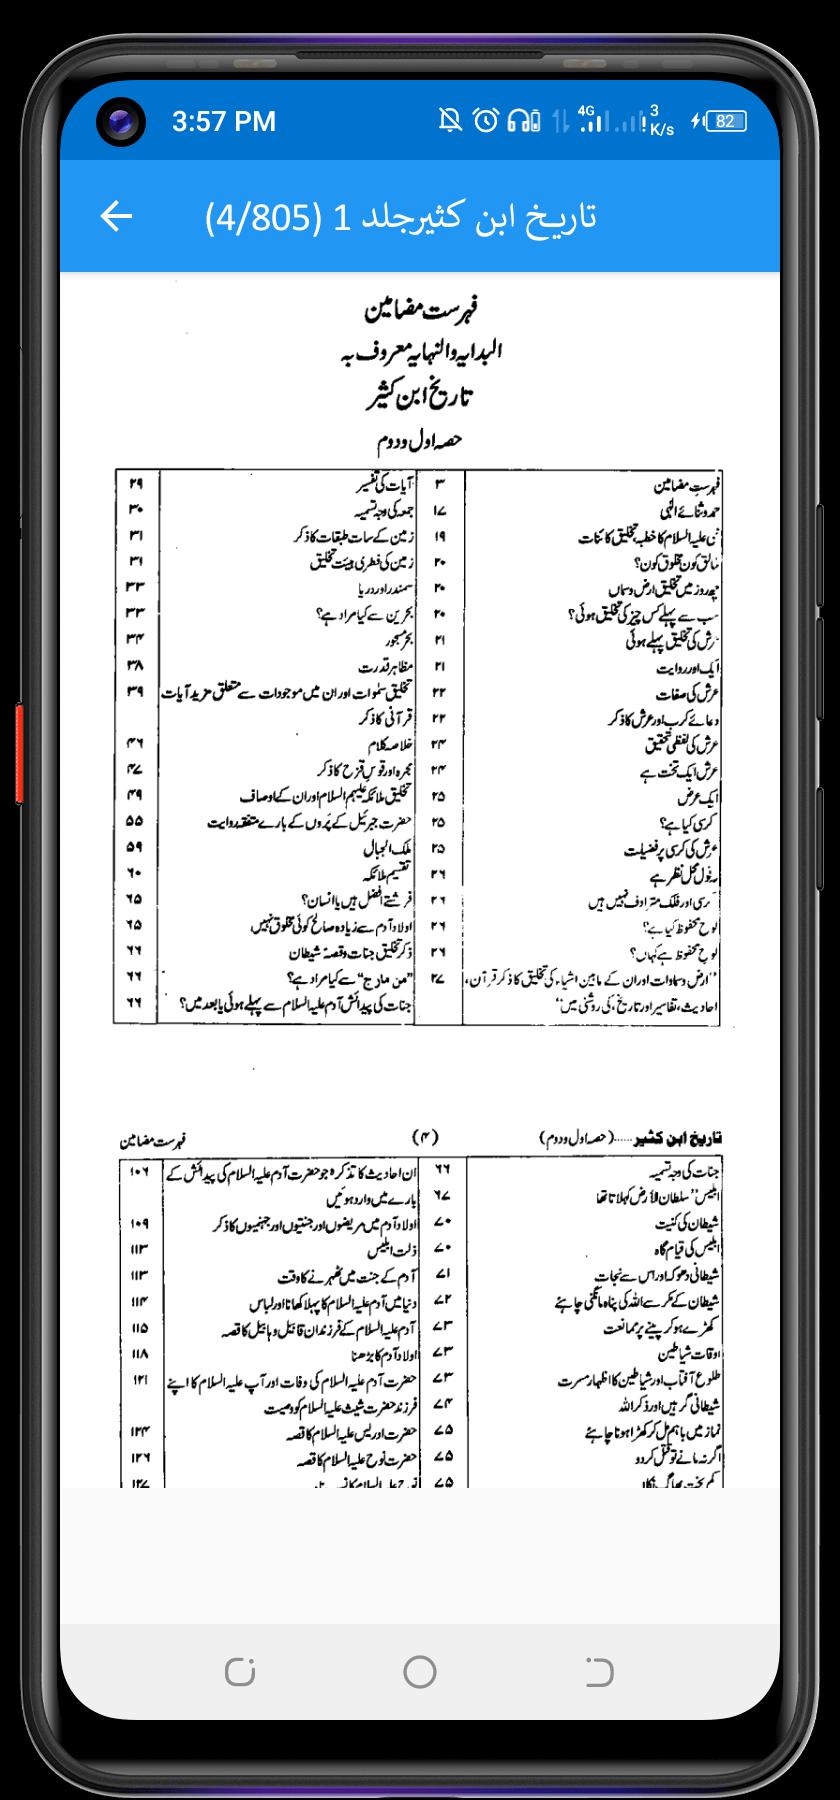 3:57 PM
4G
3 K/s
82
تاریخ ابن کثیرجلد 1 (4/805)
فہرست مضامین
البدایہ والنہایہ معروف بہ
تاریخ ابن کثیر
حصہ اول ودوم
فہرست مضامین ۳
حمد و ثنائے الٰہی ۱۷
نبی علیہ السلام کا خطبہ تخلیق کائنات ۱۹
خالق کون مخلوق کون؟ ۲۰
چھ روز میں تخلیق ارض وسماں ۲۰
سب سے پہلے کس چیز کی تخلیق ہوئی؟ ۲۰
عرش کی تخلیق پہلے ہوئی ۲۱
ایک اور روایت ۲۱
عرش کی صفات ۲۲
دعائے کرب اور عرش کا ذکر ۲۲
عرش کی لفظی تحقیق ۲۴
عرش ایک تخت ہے ۲۴
ایک عرض ۲۵
کرسی کیا ہے؟ ۲۵
عرش کی کرسی پر فضیلت ۲۵
یہ قول محل نظر ہے ۲۶
کرسی اور فلک مترادف نہیں ہیں ۲۶
لوح محفوظ کیا ہے؟ ۲۶
لوح محفوظ ہے کہاں؟ ۲۶
"ارض وسماوات اور ان کے مابین اشیاء کی تخلیق کا ذکر قرآن، ۲۷
احادیث، تفاسیر اور تاریخ، کی روشنی میں"
آیات کی تفسیر ۲۹
جمعہ کی وجہ تسمیہ ۳۰
زمین کے سات طبقات کا ذکر ۳۱
زمین کی فطری ہیئت تخلیق ۳۱
سمندر اور دریا ۳۳
بحرین سے کیا مراد ہے؟ ۳۳
بحر مسجور ۳۴
مظاہر قدرت ۳۸
تخلیق سمٰوات اور ان میں موجودات سے متعلق مزید آیات ۳۹
قرآنی کا ذکر
خلاصہ کلام ۴۶
مجرہ اور قوس قزح کا ذکر ۴۷
تخلیق ملائکہ علیہم السلام اور ان کے اوصاف ۴۹
حضرت جبرئیل کے پروں کے بارے متفقہ روایت ۵۵
ملک الجبال ۵۹
تقسیم ملائکہ ۶۰
فرشتے افضل ہیں یا انسان؟ ۶۵
اولاد آدم سے زیادہ صالح کوئی مخلوق نہیں ۶۵
ذکر تخلیق جنات و قصۂ شیطان ۶۶
"من مارج" سے کیا مراد ہے؟ ۶۶
جنات کی پیدائش آدم علیہ السلام سے پہلے ہوئی یا بعد میں؟ ۶۶
تاریخ ابن کثیر.....(حصہ اول ودوم) (۴) فہرست مضامین
جنات کی وجہ تسمیہ ۶۶
ابلیس "سلطان الارض کہلاتا تھا ۶۷
شیطان کی کنیت ۷۰
ابلیس کی قیام گاہ ۷۰
شیطانی دھوکہ اور اس سے نجات ۷۱
شیطان کے مکر سے اللہ کی پناہ مانگنی چاہئے ۷۲
کھڑے ہو کر پینے پر ممانعت ۷۳
اوقات شیاطین ۷۳
طلوع آفتاب اور شیاطین کا اظہار مسرت ۷۳
شیطانی گرہیں اور ذکر اللہ ۷۴
نماز میں باہم مل کر کھڑا ہونا چاہئے ۷۵
اگر نہ مانے تو قتل کر دو ۷۵
کم بخت بھاگ نکلا ۷۵
ان احادیث کا تذکرہ جو حضرت آدم علیہ السلام کی پیدائش کے ۱۰۶
بارے میں وارد ہوئیں
اولاد آدم میں مریضوں اور جنتیوں اور جہنمیوں کا ذکر ۱۰۹
ذلت ابلیس ۱۱۳
آدم کے جنت میں ٹھہرنے کا وقت ۱۱۳
دنیا میں آدم علیہ السلام کا پہلا کھانا اور لباس ۱۱۴
آدم علیہ السلام کے فرزندان قابیل و ہابیل کا قصہ ۱۱۵
اولاد آدم کا بڑھنا ۱۱۸
حضرت آدم علیہ السلام کی وفات اور آپ علیہ السلام کا اپنے ۱۲۱
فرزند حضرت شیث علیہ السلام کو وصیت
حضرت ادریس علیہ السلام کا قصہ ۱۲۴
حضرت نوح علیہ السلام کا قصہ ۱۲۶
نوح علیہ السلام کا ۱۲۷